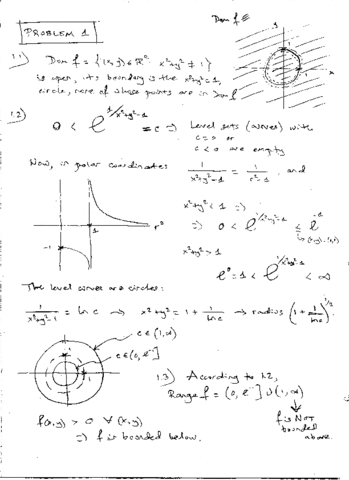 PROBLEM 1
Dom f ≡
y
x
1
1.1) Dom f = {(x,y) ∈ ℝ²: x²+y² ≠ 1}
is open, its boundary is the x²+y²=1,
circle, none of whose points are in Dom f
1.2)
0 < e^{1/(x²+y²-1)} = c ⇒ Level sets (curves) with
c = 0 or
c < 0 are empty
Now, in polar coordinates 1/(x²+y²-1) = 1/(r²-1), and
x²+y² < 1 ⇒
⇒ 0 < e^{1/(x²+y²-1)} ≤ e^{-1}
x²+y² > 1
e⁰ = 1 < e^{1/(x²+y²-1)} < ∞
-1
1
The level curves are circles:
1/(x²+y²-1) = ln c → x²+y² = 1 + 1/ln c → radius (1 + 1/ln c)^{1/2}
c ∈ (1,∞)
c ∈ (0, e⁻¹]
1
1.3) According to 1.2,
Range f = (0, e⁻¹] ∪ (1,∞)
f(x,y) > 0 ∀ (x,y)
⇒ f is bounded below.
f is NOT
bounded
above.